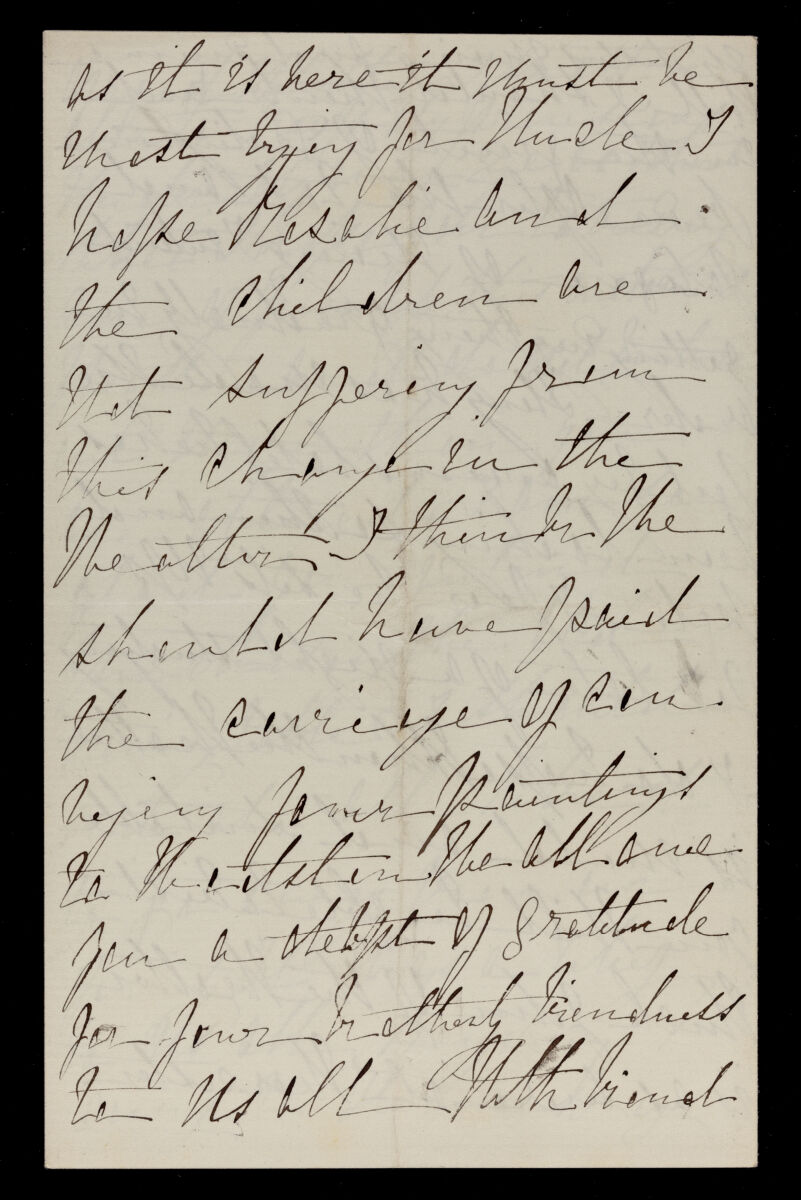 as it is here it must be
most trying for Uncle I
hope Rosalie and
the children are
not suffering from
this change in the
Weather I think We
should have paid
the carriage of con
veying your paintings
to We all owe
you a debpt of gratitude
for your brotherly kiendness
to us all With kiend